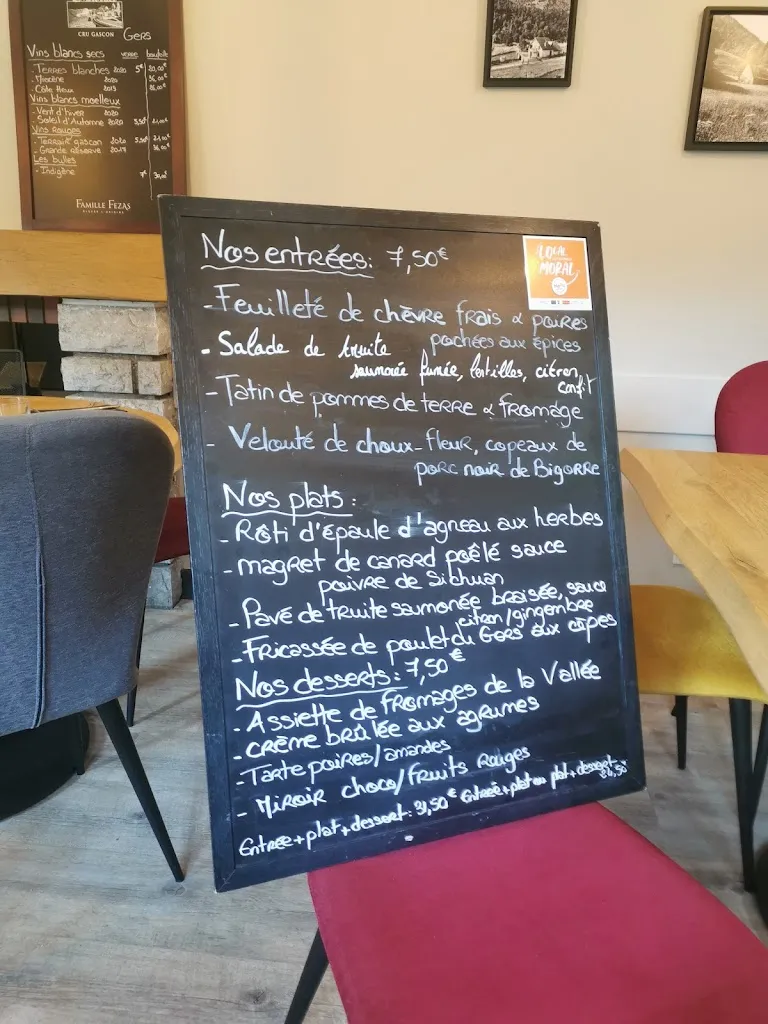 CRU GASCON Gers
Vins blancs secs verre bouteille
- Terres blanches 2020 5€
2020
2019
Vins blancs moelleux
- Vent d'hiver 2020
- Soleil d'Automne 2020 5,50€
Vins Rouges
- Terroir gascon 2020 5,50€
- Grande Réserve 2018
Les bulles
- Indigène 7€
FAMILLE FEZAS
Nos entrées: 7,50€
LOCAL
MORAL
- Feuilleté de chèvre frais & poires
pochées aux épices
- Salade de truite
saumonée fumée, lentilles, citron
confit
- Tatin de pommes de terre & fromage
- Velouté de choux-fleur, copeaux de
porc noir de Bigorre
Nos plats:
- Rôti d'épaule d'agneau aux herbes
- magret de canard poêlé sauce
poivre de Sichuan
- Pavé de truite saumonée braisée, sauce
citron/gingembre
- Fricassée de poulet du Gers aux cèpes
Nos desserts: 7,50€
- Assiette de fromages de la Vallée
- crème brûlée aux agrumes
- Tarte poires/amandes
- Miroir choco/fruits Rouges
Entrée+plat+dessert: 31,50€ Entrée+plat ou plat+dessert